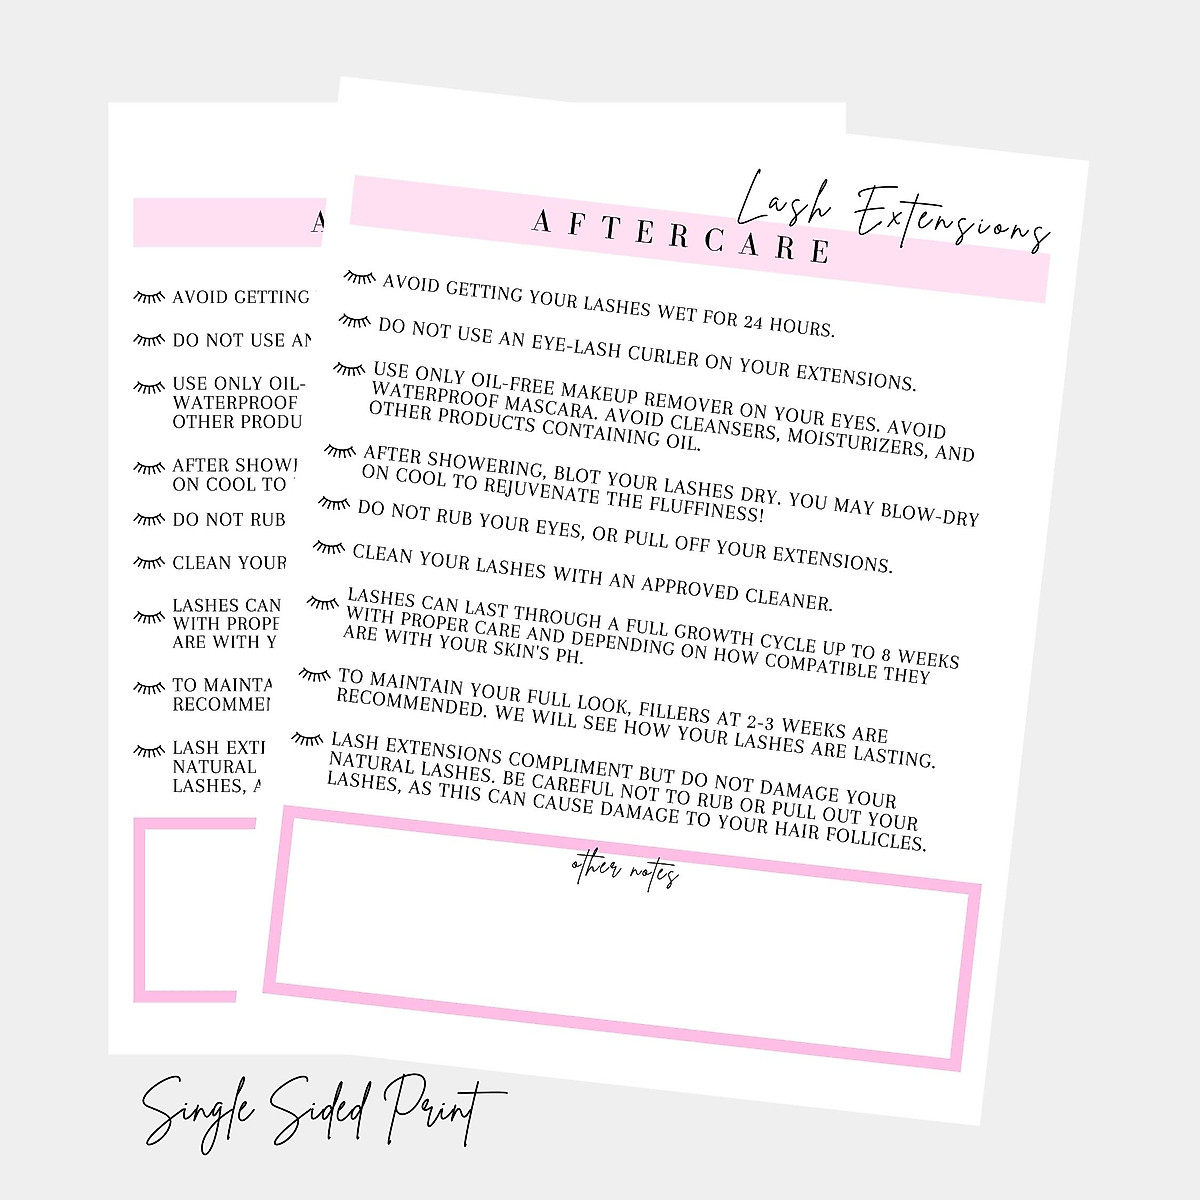 Lash Extensions
AFTERCARE
AVOID GETTING YOUR LASHES WET FOR 24 HOURS.
DO NOT USE AN EYE-LASH CURLER ON YOUR EXTENSIONS.
USE ONLY OIL-FREE MAKEUP REMOVER ON YOUR EYES. AVOID
WATERPROOF MASCARA. AVOID CLEANSERS, MOISTURIZERS, AND
OTHER PRODUCTS CONTAINING OIL.
AFTER SHOWERING, BLOT YOUR LASHES DRY. YOU MAY BLOW-DRY
ON COOL TO REJUVENATE THE FLUFFINESS!
DO NOT RUB YOUR EYES, OR PULL OFF YOUR EXTENSIONS.
CLEAN YOUR LASHES WITH AN APPROVED CLEANER.
LASHES CAN LAST THROUGH A FULL GROWTH CYCLE UP TO 8 WEEKS
WITH PROPER CARE AND DEPENDING ON HOW COMPATIBLE THEY
ARE WITH YOUR SKIN'S PH.
TO MAINTAIN YOUR FULL LOOK, FILLERS AT 2-3 WEEKS ARE
RECOMMENDED. WE WILL SEE HOW YOUR LASHES ARE LASTING.
LASH EXTENSIONS COMPLIMENT BUT DO NOT DAMAGE YOUR
NATURAL LASHES. BE CAREFUL NOT TO RUB OR PULL OUT YOUR
LASHES, AS THIS CAN CAUSE DAMAGE TO YOUR HAIR FOLLICLES.
other notes
A
AVOID GETTING
DO NOT USE AN
USE ONLY OIL-
WATERPROOF
OTHER PRODU
AFTER SHOW
ON COOL TO
DO NOT RUB
CLEAN YOUR
LASHES CAN
WITH PROPE
ARE WITH Y
TO MAINTA
RECOMME
LASH EXT
NATURAL
LASHES, A
Single Sided Print